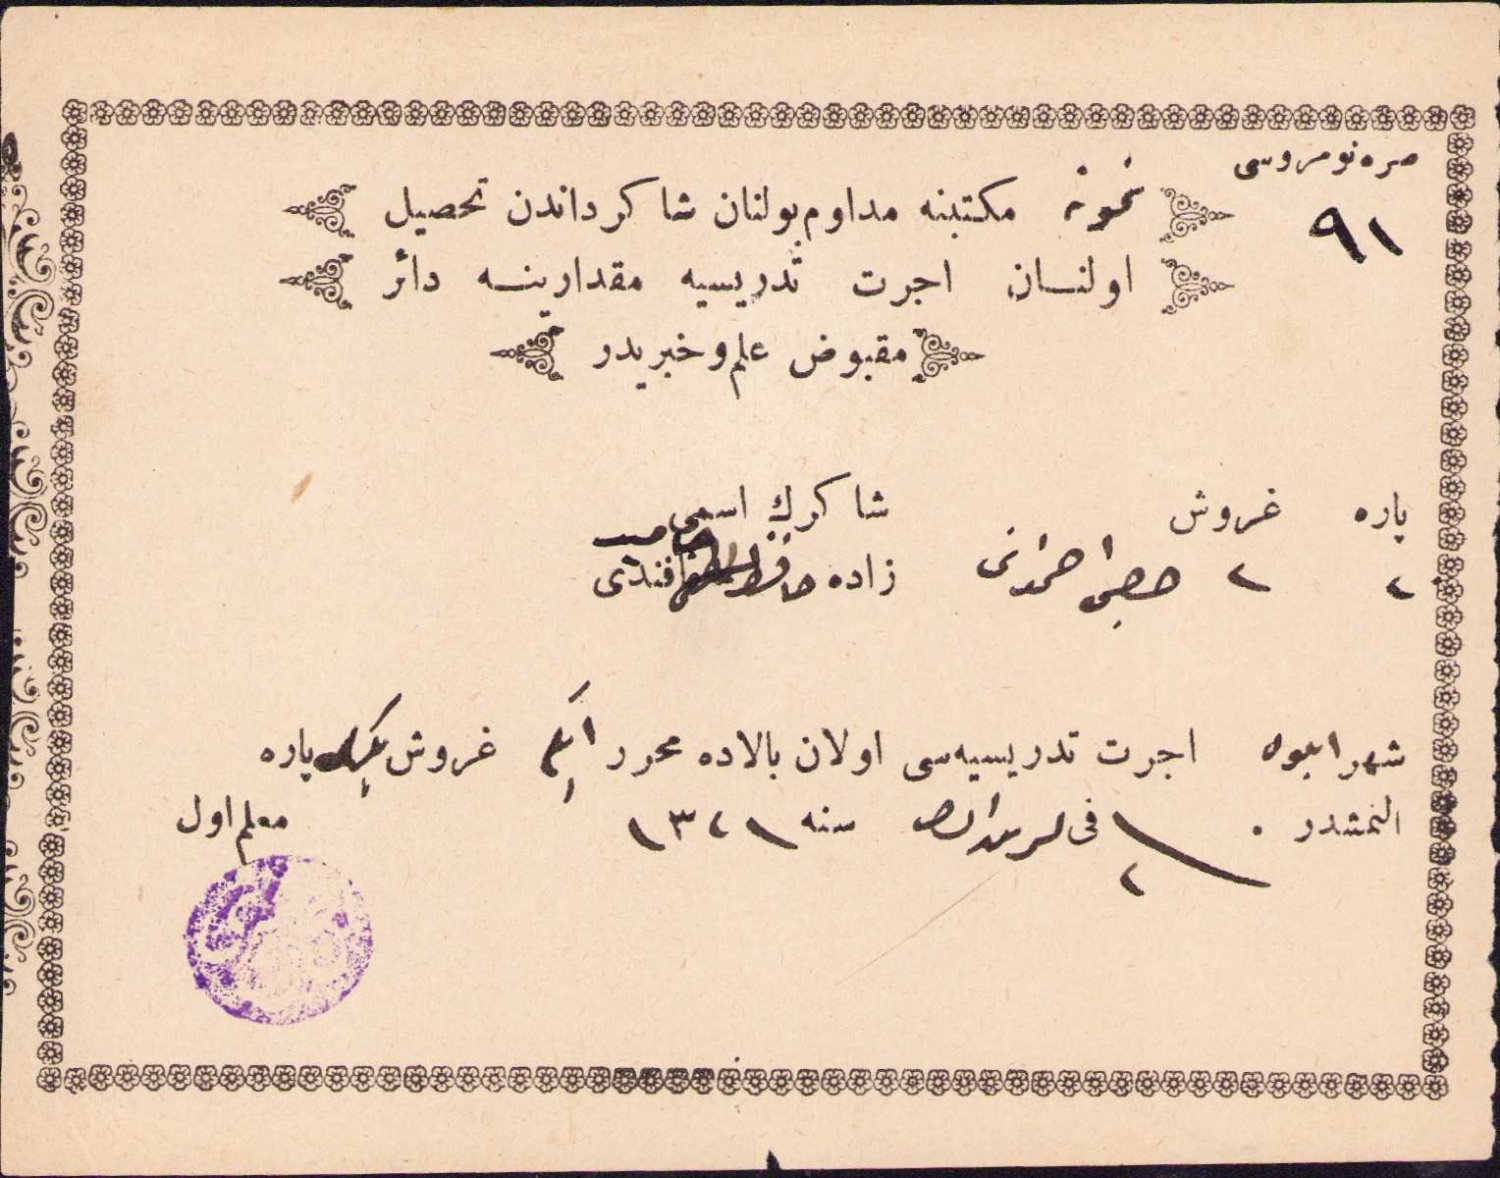 صره نومروسی
٩١
نمونه مكتبنه مداوم بولنان شاكرداندن تحصیل
اولنان اجرت تدریسیه مقدارینه دائر
مقبوض علم و خبریدر
پاره غروش شاكرك اسمی
٢ ٢ زاده حافظ افندی
شهر اجرت تدریسیه‌سی اولان بالاده محرر غروش پاره
النمشدر . فی سنه ١٣٢١ معلم اول